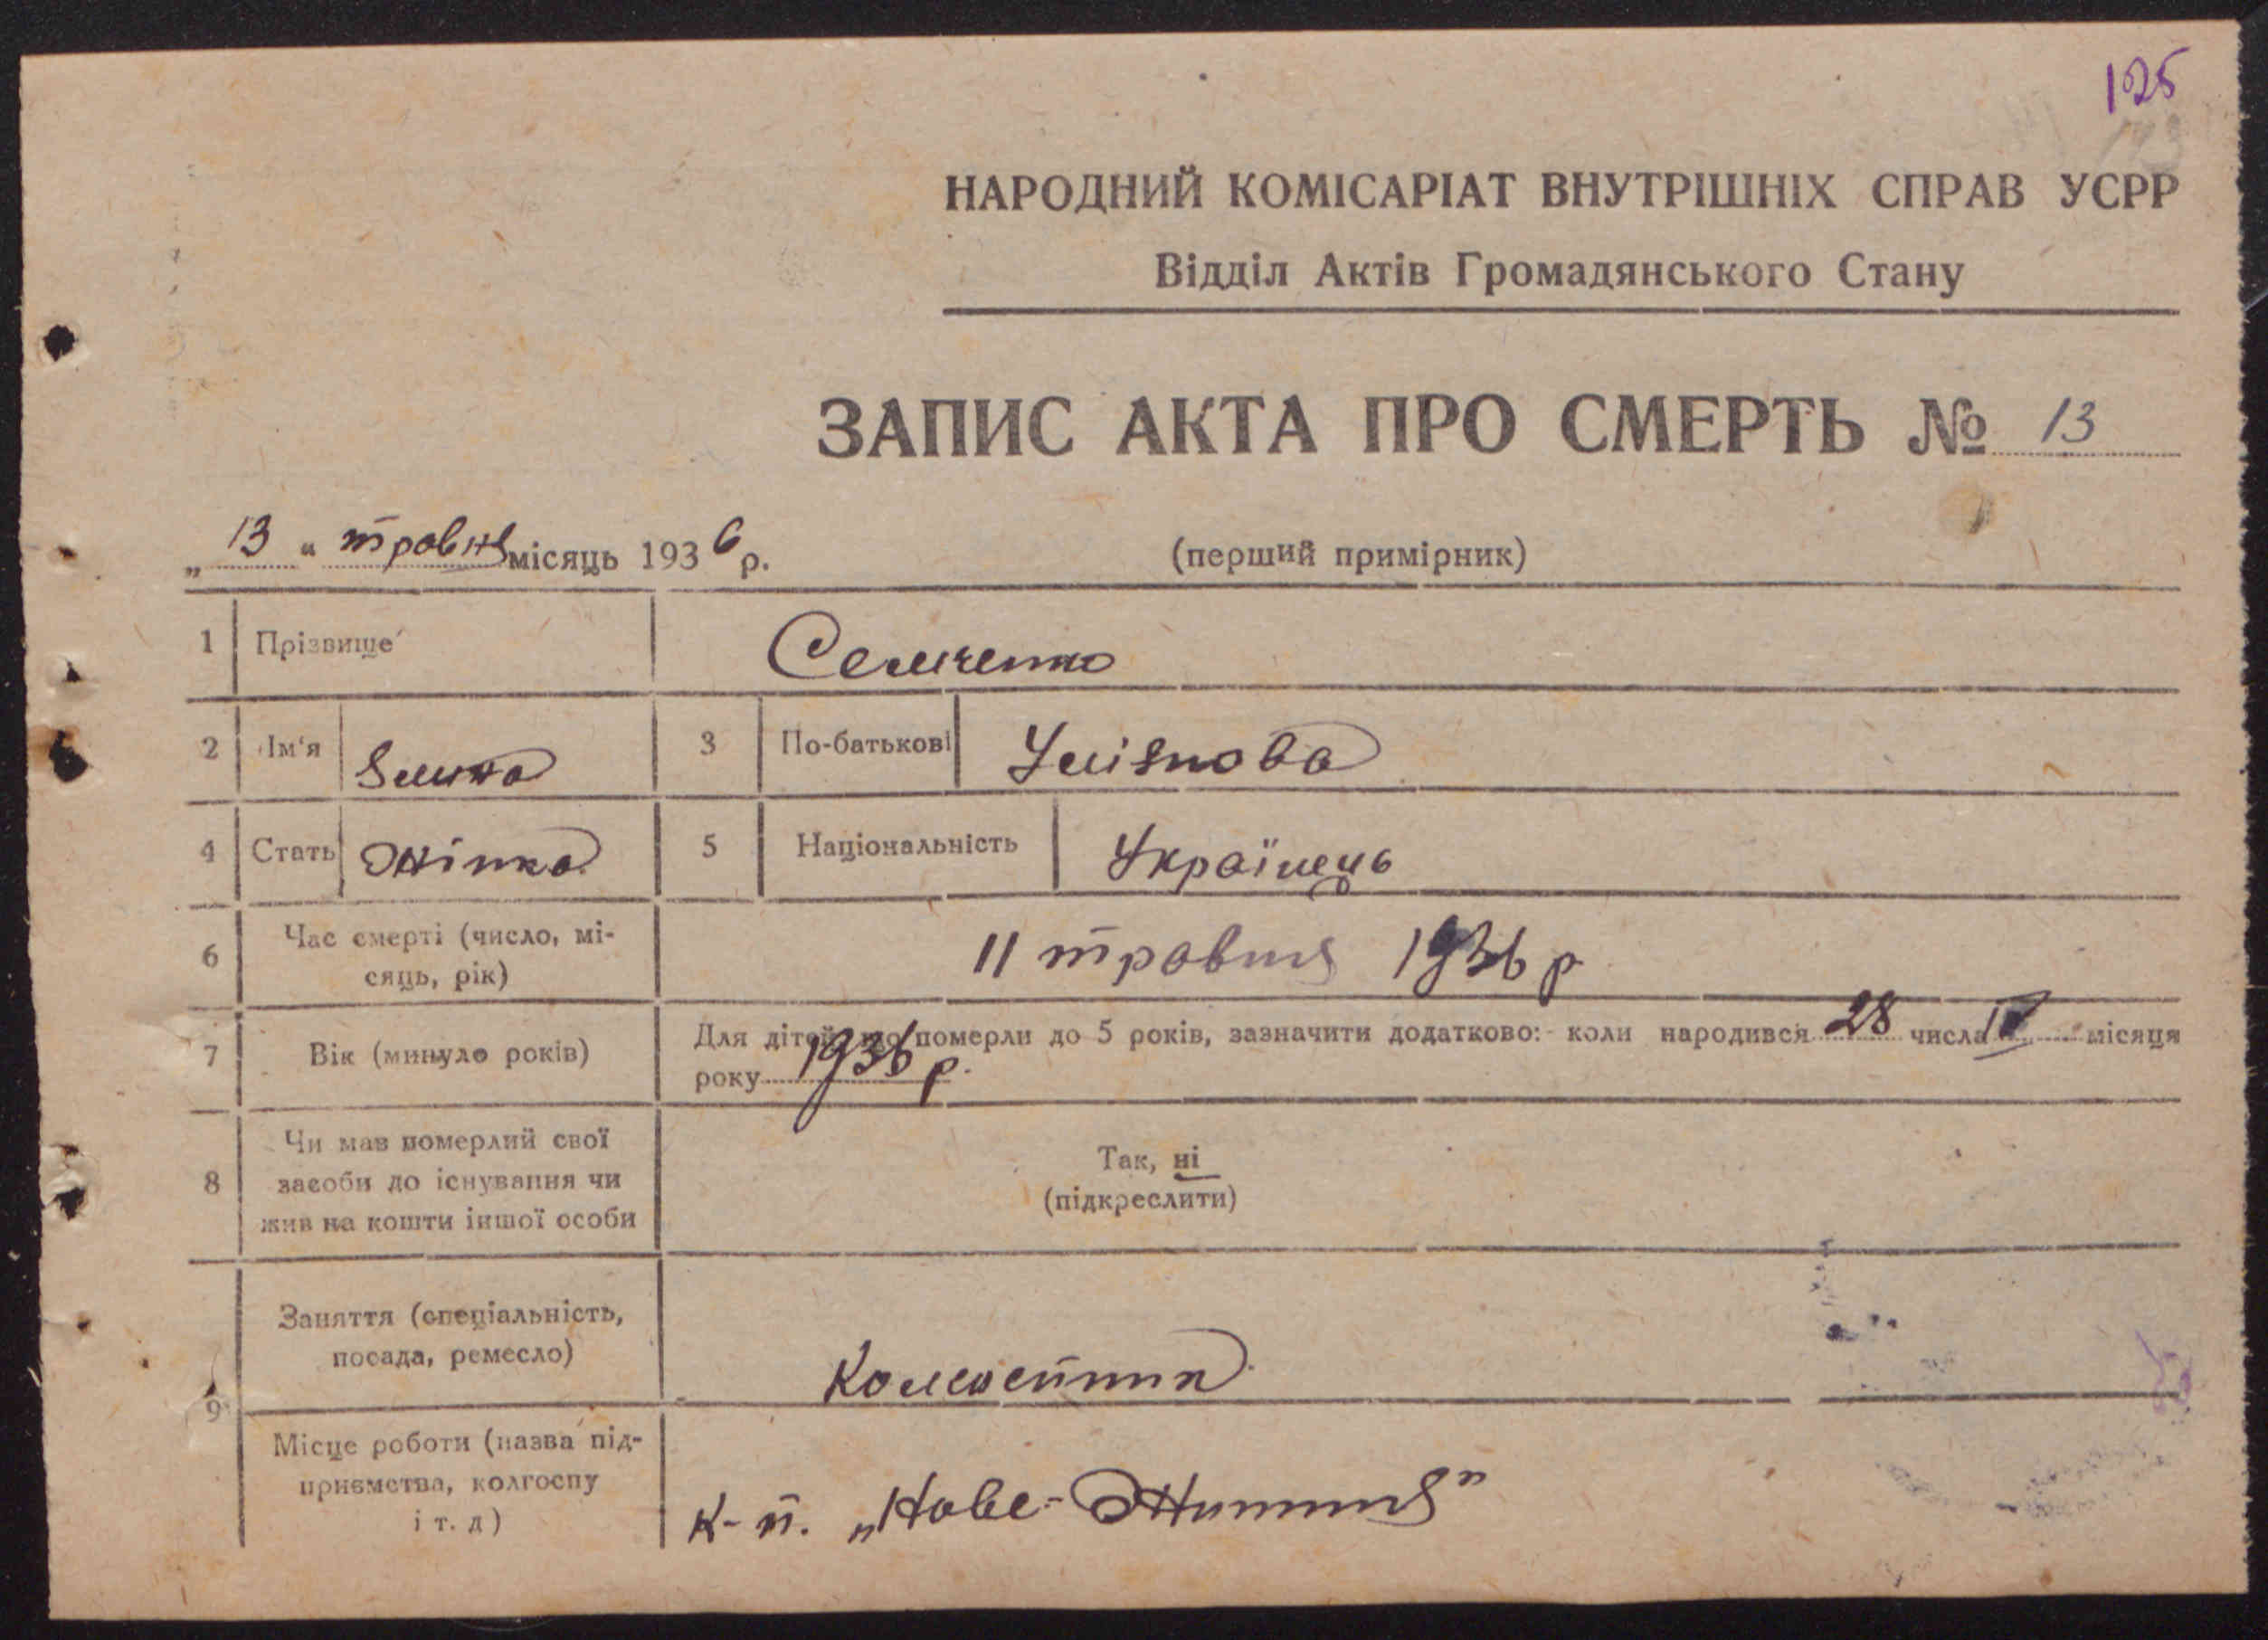 125
НАРОДНИЙ КОМІСАРІАТ ВНУТРІШНІХ СПРАВ УСРР
Відділ Актів Громадянського Стану
ЗАПИС АКТА ПРО СМЕРТЬ № 13
„13“ травня місяць 1936 р.
(перший примірник)
1 Прізвище Семченко
2 Ім'я 3 По-батькові
4 Стать Жінка 5 Національність Українець
6 Час смерті (число, мі-
сяць, рік) 11 травня 1936 р
7 Вік (минуло років) Для дітей, що померли до 5 років, зазначити додатково:- коли народився 28 числа місяця
року 1936 р.
8 Чи мав померлий свої
засоби до існування чи
жив на кошти іншої особи
Так, ні
(підкреслити)
9 Заняття (спеціальність,
посада, ремесло)
Місце роботи (назва під-
приємства, колгоспу
і т. д)
к-п. „Нове-Життя"